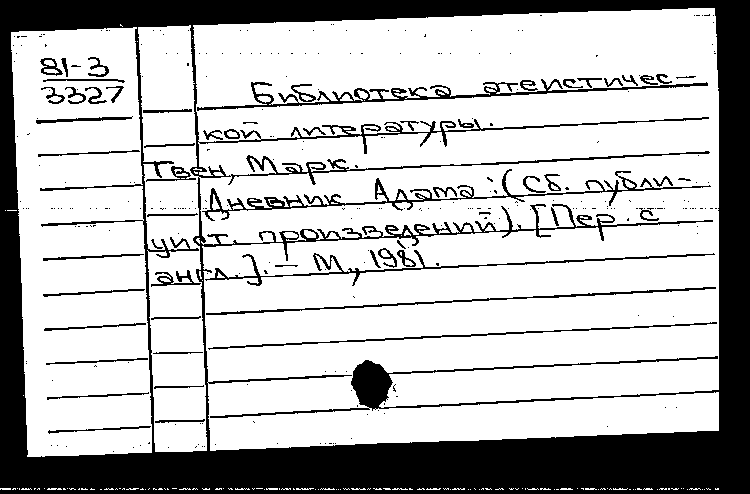 81-3
3327
Библиотека атеистичес-
кой литературы.
Твен, Марк.
Дневник Адама : (Сб. публи-
цист. произведений). [Пер. с
англ.]. - М., 1981.